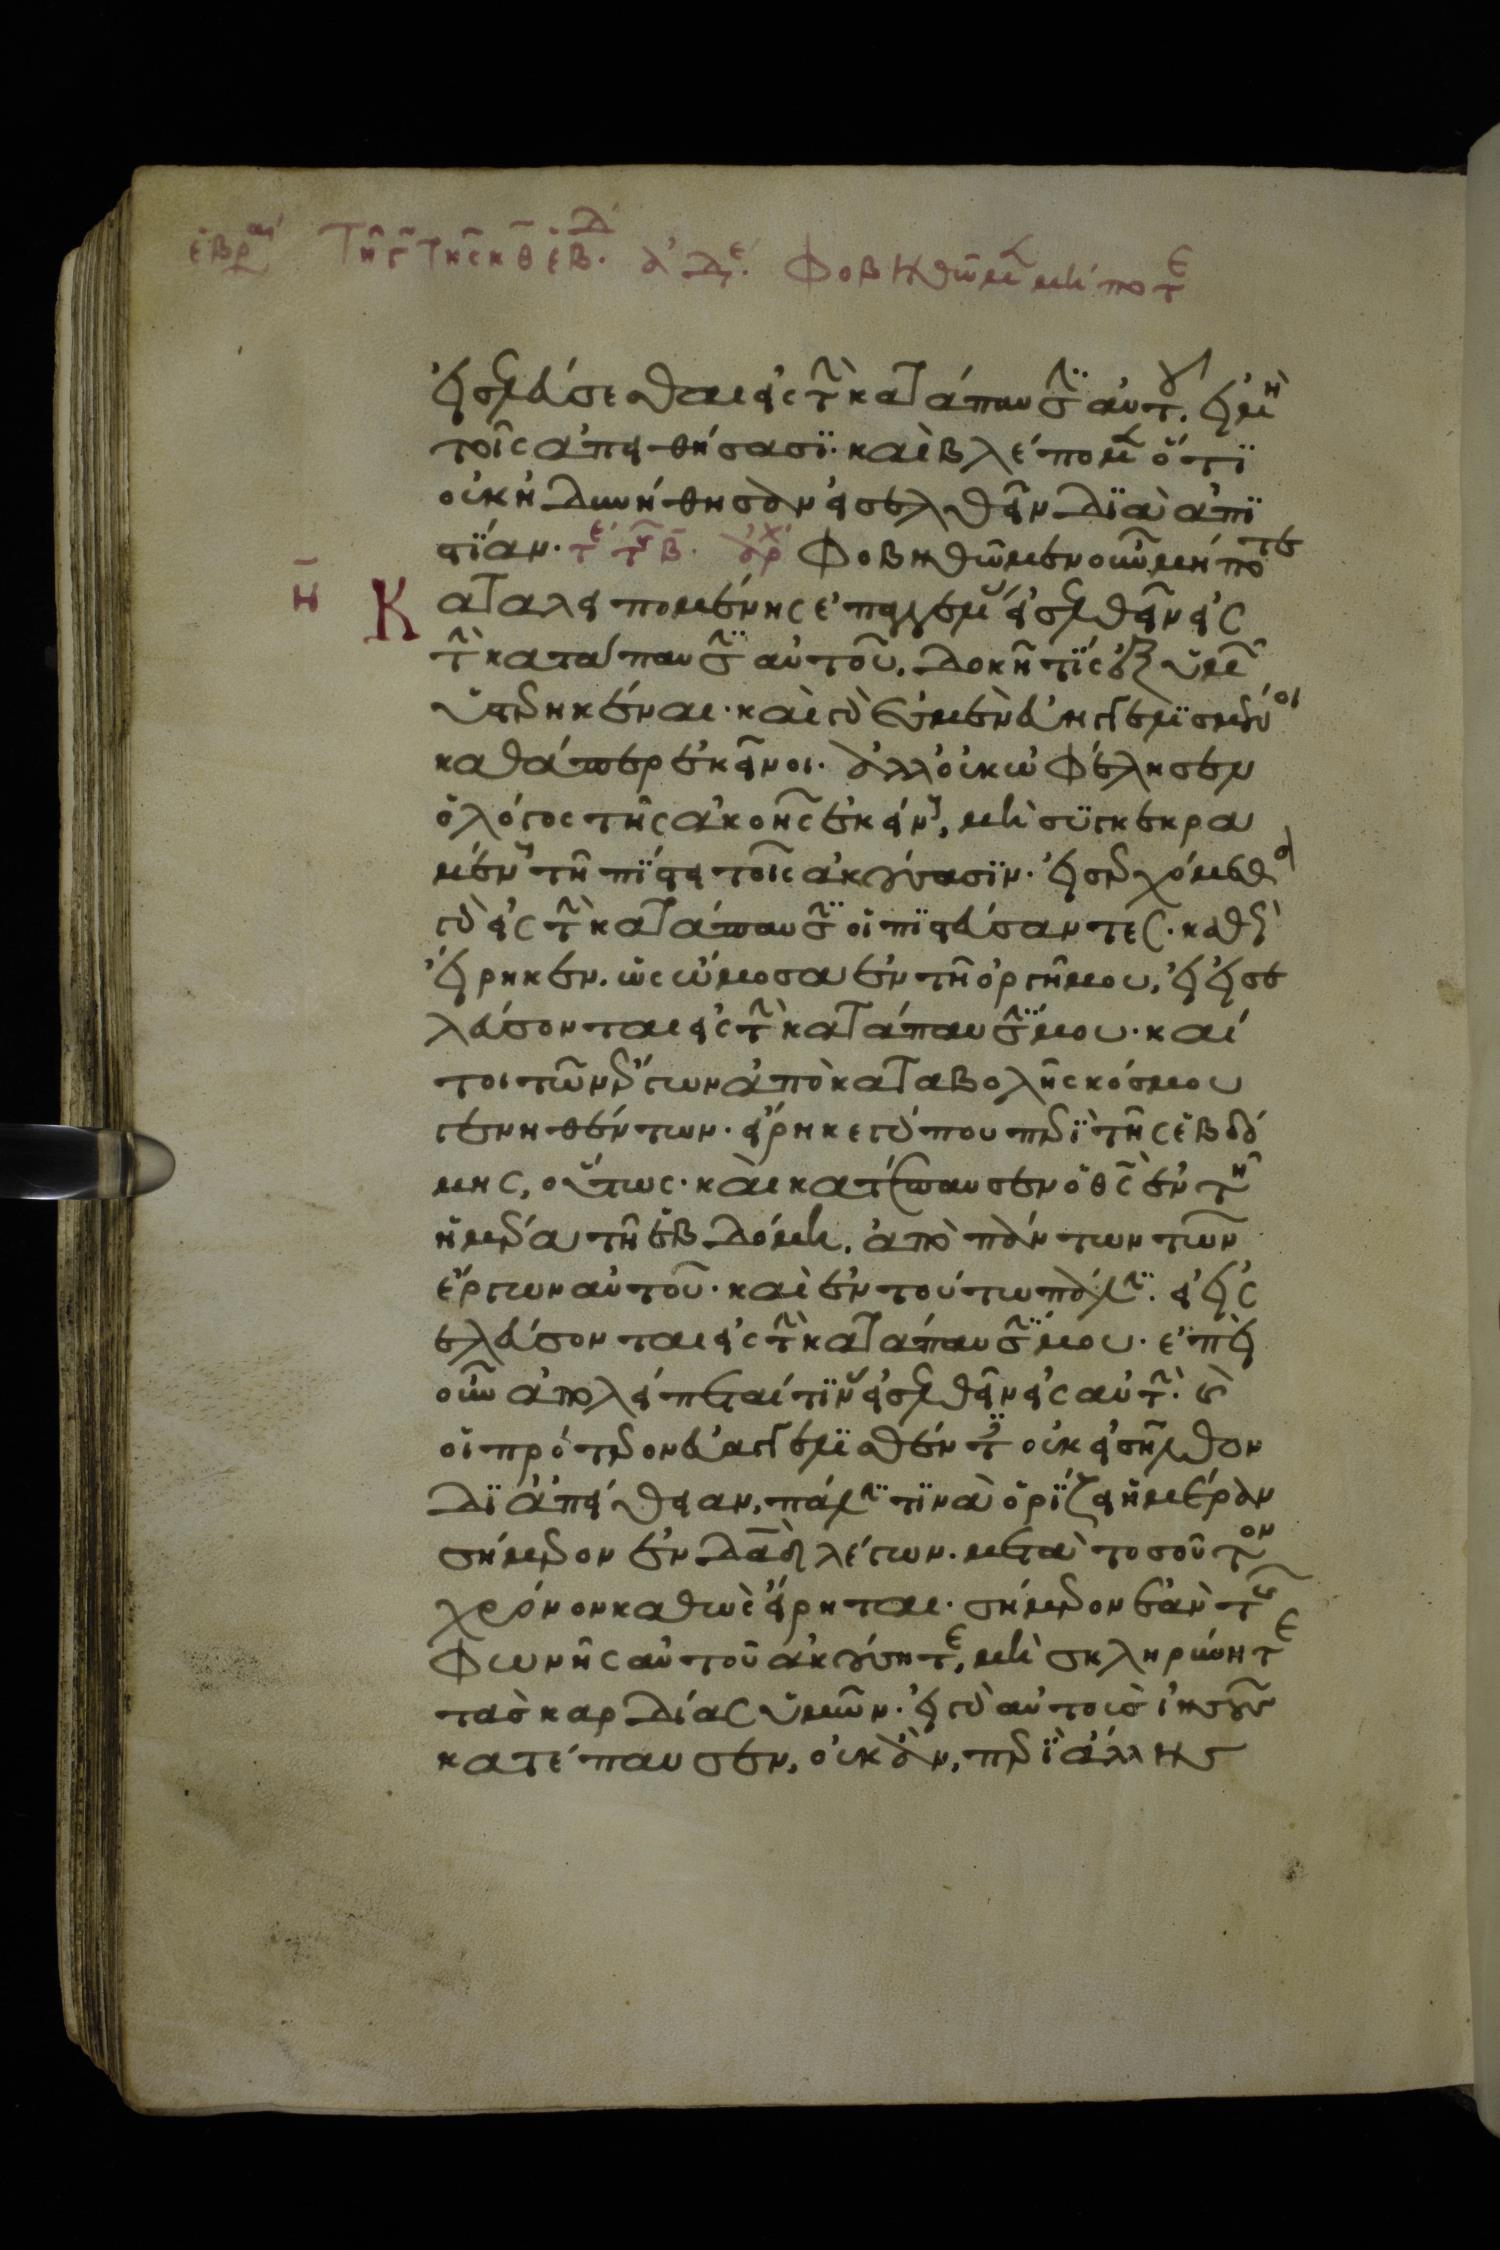 ἑβραι Τῆ γ τῆς κθ ἑβδ. ἀδε. Φοβηθῶμεν μήποτε
εἰσελεύσεσθαι εἰς τὴν κατάπαυσϊν αὐτοῦ. εἰ μὴ
τοῖς ἀπειθήσασϊ. καὶ βλέπομεν ὅτϊ
οὐκ ἠδυνήθησαν εἰσελθεῖν δϊὰ ἀπϊ
στϊαν. τε τῆς β. ἀρχ Φοβηθῶμεν οὖν μήποτε
η Καταλειπομένης ἐπαγγελίας εἰσελθεῖν εἰς
τὴν κατάπαυσϊν αὐτοῦ. δοκῆ τϊς ἐξ ὑμῶν
ὑστερηκέναι. καὶ γὰρ ἐσμὲν εὐηγγελϊσμένοι
καθάπερ ἐκεῖνοι. ἀλλ οὐκ ὠφέλησεν
ὁ λόγος τῆς ἀκοῆς ἐκείνους, μὴ συγκεκρα
μένους τῆ πίστει τοῖς ἀκούσασϊν. εἰσερχόμεθα
γὰρ εἰς τὴν κατάπαυσϊν οἱ πϊστεύσαντες. καθὼς
εἴρηκεν. ὡς ὤμοσα ἐν τῆ ὀργῆ μου, εἰ εἰσε
λεύσονται εἰς τὴν κατάπαυσϊν μου. καί
τοι τῶν ἔργων ἀπὸ καταβολῆς κόσμου
γενηθέντων. εἴρηκε γάρ που περϊ τῆς ἑβδό
μης, οὕτως. καὶ κατέπαυσεν ὁ θς ἐν τῆ
ἡμέρα τῆ ἑβδόμη, ἀπὸ πάντων τῶν
ἔργων αὐτοῦ. καὶ ἐν τούτω πάλϊν. εἰ εἰς
ελεύσονται εἰς τὴν κατάπαυσϊν μου. ἐπεὶ
οὖν ἀπολείπεταί τϊνας εἰσελθεῖν εἰς αὐτήν. καὶ
οἱ πρότερον εὐαγγελϊσθέντες οὐκ εἰσῆλθον
δϊ ἀπείθειαν, πάλϊν τϊνὰ ὁρϊζει ἡμέραν
σήμερον ἐν δαδ λέγων. μετὰ τοσοῦτον
χρόνον καθὼς εἴρηται. σήμερον ἐὰν τῆς
φωνῆς αὐτοῦ ἀκούσητε, μὴ σκληρύνητε
τὰς καρδίας ὑμῶν. εἰ γὰρ αὐτοὺς ἰησοῦς
κατέπαυσεν, οὐκ ἂν, περϊ ἄλλης